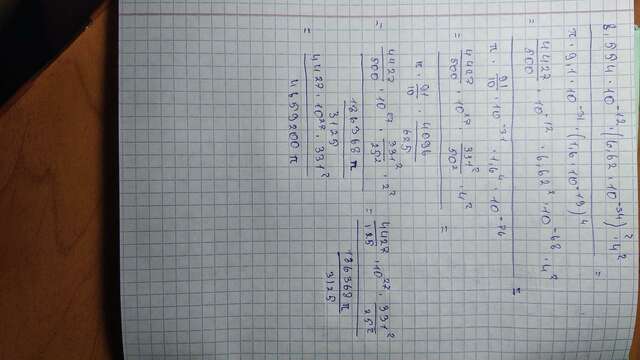 8,854 · 10⁻¹² · (6,62 · 10⁻³⁴)² · 4²
π · 9,1 · 10⁻³¹ · (1,6 · 10⁻¹⁹)⁴ =
= 4427/500 · 10⁻¹² · 6,62² · 10⁻⁶⁸ · 4²
π · 91/10 · 10⁻³¹ · 1,6⁴ · 10⁻⁷⁶ =
4427/500 · 10²⁷ · 331²/50² · 4²
π · 91/10 · 4096/625 =
= 4427/500 · 10²⁷ · 331²/25² · 2²
186368 π/3125
= 4427/125 · 10²⁷ · 331²/25²
186368 π/3125
= 4427 · 10²⁷ · 331²
4659200 π